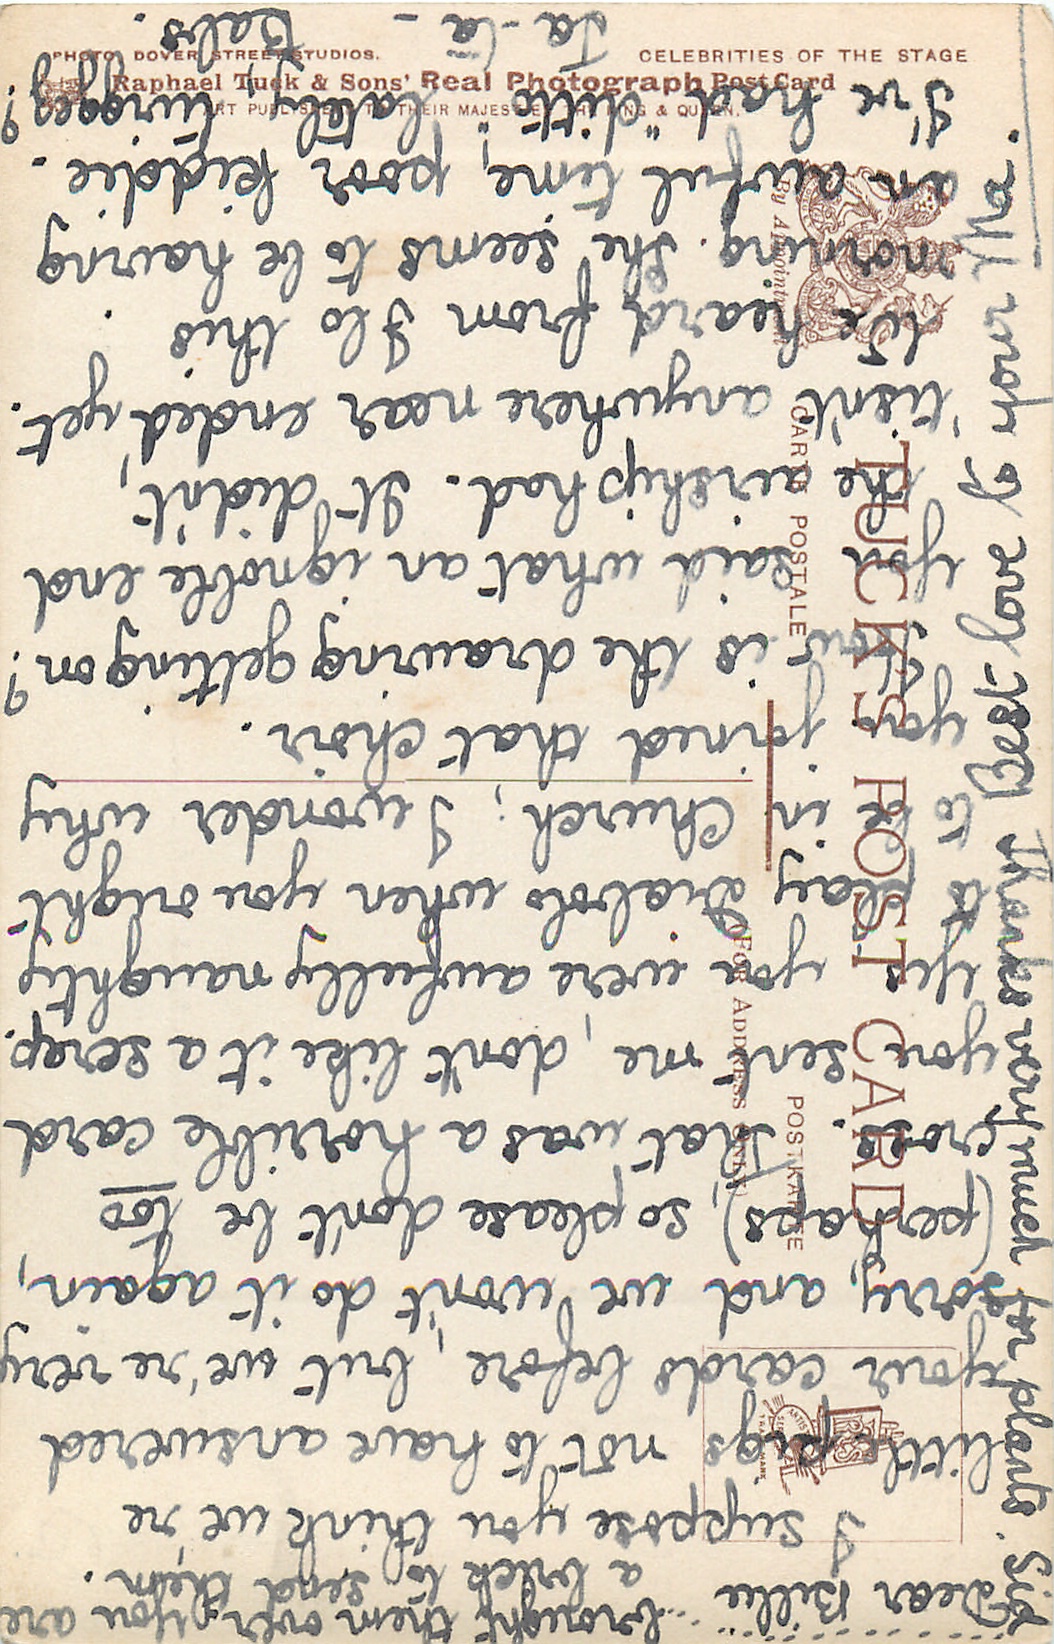 PHOTO. DOVER STREET STUDIOS.
CELEBRITIES OF THE STAGE
Raphael Tuck & Sons' Real Photograph Post Card
ART PUBLISHERS TO THEIR MAJESTIES THE KING & QUEEN.
By Appointment
TUCK'S POST CARD
CARTE POSTALE
POSTKARTE
(FOR ADDRESS ONLY)
Dear Billie
I suppose you think we're
little pigs not to have answered
your cards before, but we're very
sorry, and we won't do it again,
(perhaps), so please don't be too
cross. That was a horrible card
you sent me, don't like it a scrap.
Yes you were awfully naughty
to play diabolo when you ought
to be in Church; I wonder why
you joined that choir.
How is the drawing getting on?
You said what an ignoble end
the airship had. It didn't,
'tisn't anywhere near ended yet.
We heard from Flo this
morning. She seems to be having
an awful time, poor kiddie.
I've had "ditto" lately,
Ta-la - Babs.
Best love of your Ma.
Thanks very much for plants. Sid
brought them over. You are
a brick to send them.